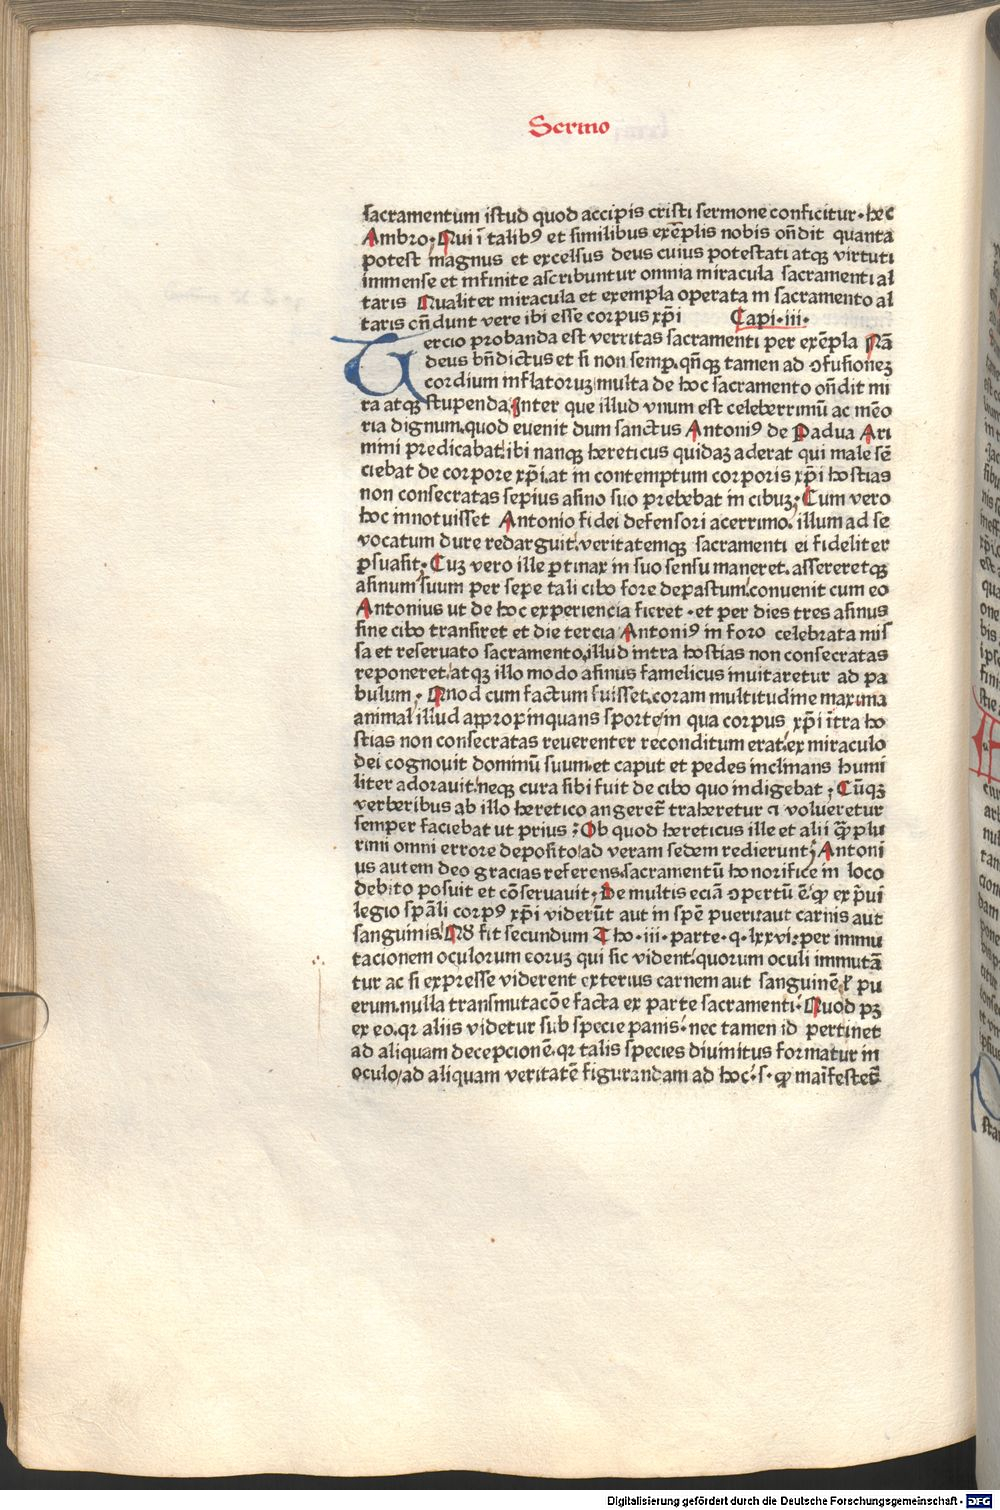 Sermo
sacramentum istud quod accipis cristi sermone conficitur· hec
Ambro· Qui ī talibꝰ et similibus exēplis nobis oñdit quanta
potest magnus et excelsus deus cuius potestati atqꝫ virtuti
immense et infinite ascribuntur omnia miracula sacramenti al
taris Qualiter miracula et exempla operata in sacramento al
taris oñdunt vere ibi esse corpus xp̄i Capi·iii·
Tercio probanda est veritas sacramenti per exēpla Nā
deus bñdictus et si non semp̲ qñqꝫ tamen ad ꝯfusionez
cordium inflatoruz multa de hoc sacramento oñdit mi
ra atqꝫ stupenda Inter que illud vnum est celeberrimū ac mēo
ria dignum. quod euenit dum sanctus Antoniꝰ de Padua Ari
mini predicabat. ibi nanqꝫ hereticus quidaz aderat qui male sē
ciebat de corpore xp̄i. at in contemptum corporis xp̄i hostias
non consecratas sepius asino suo prebebat in cibuz; Cum vero
hoc innotuisset Antonio fidei defensori acerrimo. illum ad se
vocatum dure redarguit. veritatemqꝫ sacramenti ei fideliter
p̲suasit; Cuz vero ille p̲tinax in suo sensu maneret. assereretqꝫ
asinum suum per sepe tali cibo fore depastum. convenit cum eo
Antonius ut de hoc experiencia fieret· et per dies tres asinus
sine cibo transiret et die tercia Antoniꝰ in foro celebrata mis
sa et reseruato sacramento. illud intra hostias non consecratas
reponeret. atqꝫ illo modo asinus famelicus inuitaretur ad pa
bulum· Quod cum factum fuisset. coram multitudine maxima
animal illud appropinquans sporte in qua corpus xp̄i ītra ho
stias non consecratas reuerenter reconditum erat. ex miraculo
dei cognouit dominū suum. et caput et pedes inclinans humi
liter adorauit. neqꝫ cura sibi fuit de cibo quo indigebat; Cūqꝫ
verberibus ab illo heretico angeret̄ traheretur ⁊ volueretur
semper faciebat ut prius; Ob quod hereticus ille et alii q̄ꝫ plu
rimi omni errore deposito ad veram sedem redierunt; Antoni
us autem deo gracias referens. sacramentū honorifice in loco
debito posuit et cōseruauit; De multis eciā ꝯpertū ē ꝙ ex p̄ui
legio sp̄ali corpꝰ xp̄i viderūt aut in sp̄e pueri aut carnis aut
sanguinis. Qđ fit secundum Tho·iii·parte·q·lxxvi: per immu
tacionem oculorum eoruz qui sic vident. quorum oculi immutā
tur ac si expresse viderent exterius carnem aut sanguinē ł pu
erum. nulla transmutacōe facta ex parte sacramenti· Quod pꝫ
ex eo. qꝛ aliis videtur sub specie panis· nec tamen id pertinet
ad aliquam decepcionē. qꝛ talis species diuinitus formatur in
oculo ad aliquam veritatē figurandam ad hoc·s·ꝙ maīfestet̄
Digitalisierung gefördert durch die Deutsche Forschungsgemeinschaft - DFG